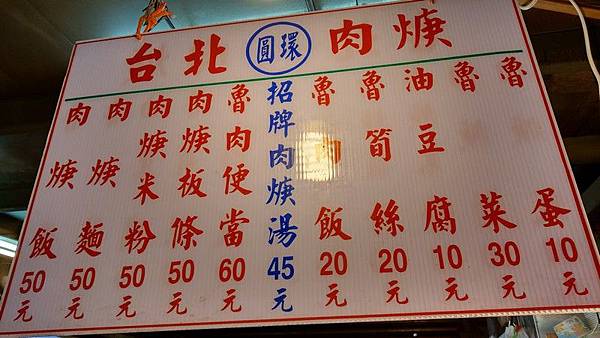 台北圓環肉焿
肉焿飯50元
肉焿麵50元
肉焿米粉50元
肉焿板條50元
魯肉便當60元
招牌肉焿湯45元
魯肉飯20元
魯筍絲20元
油豆腐10元
魯菜30元
魯蛋10元